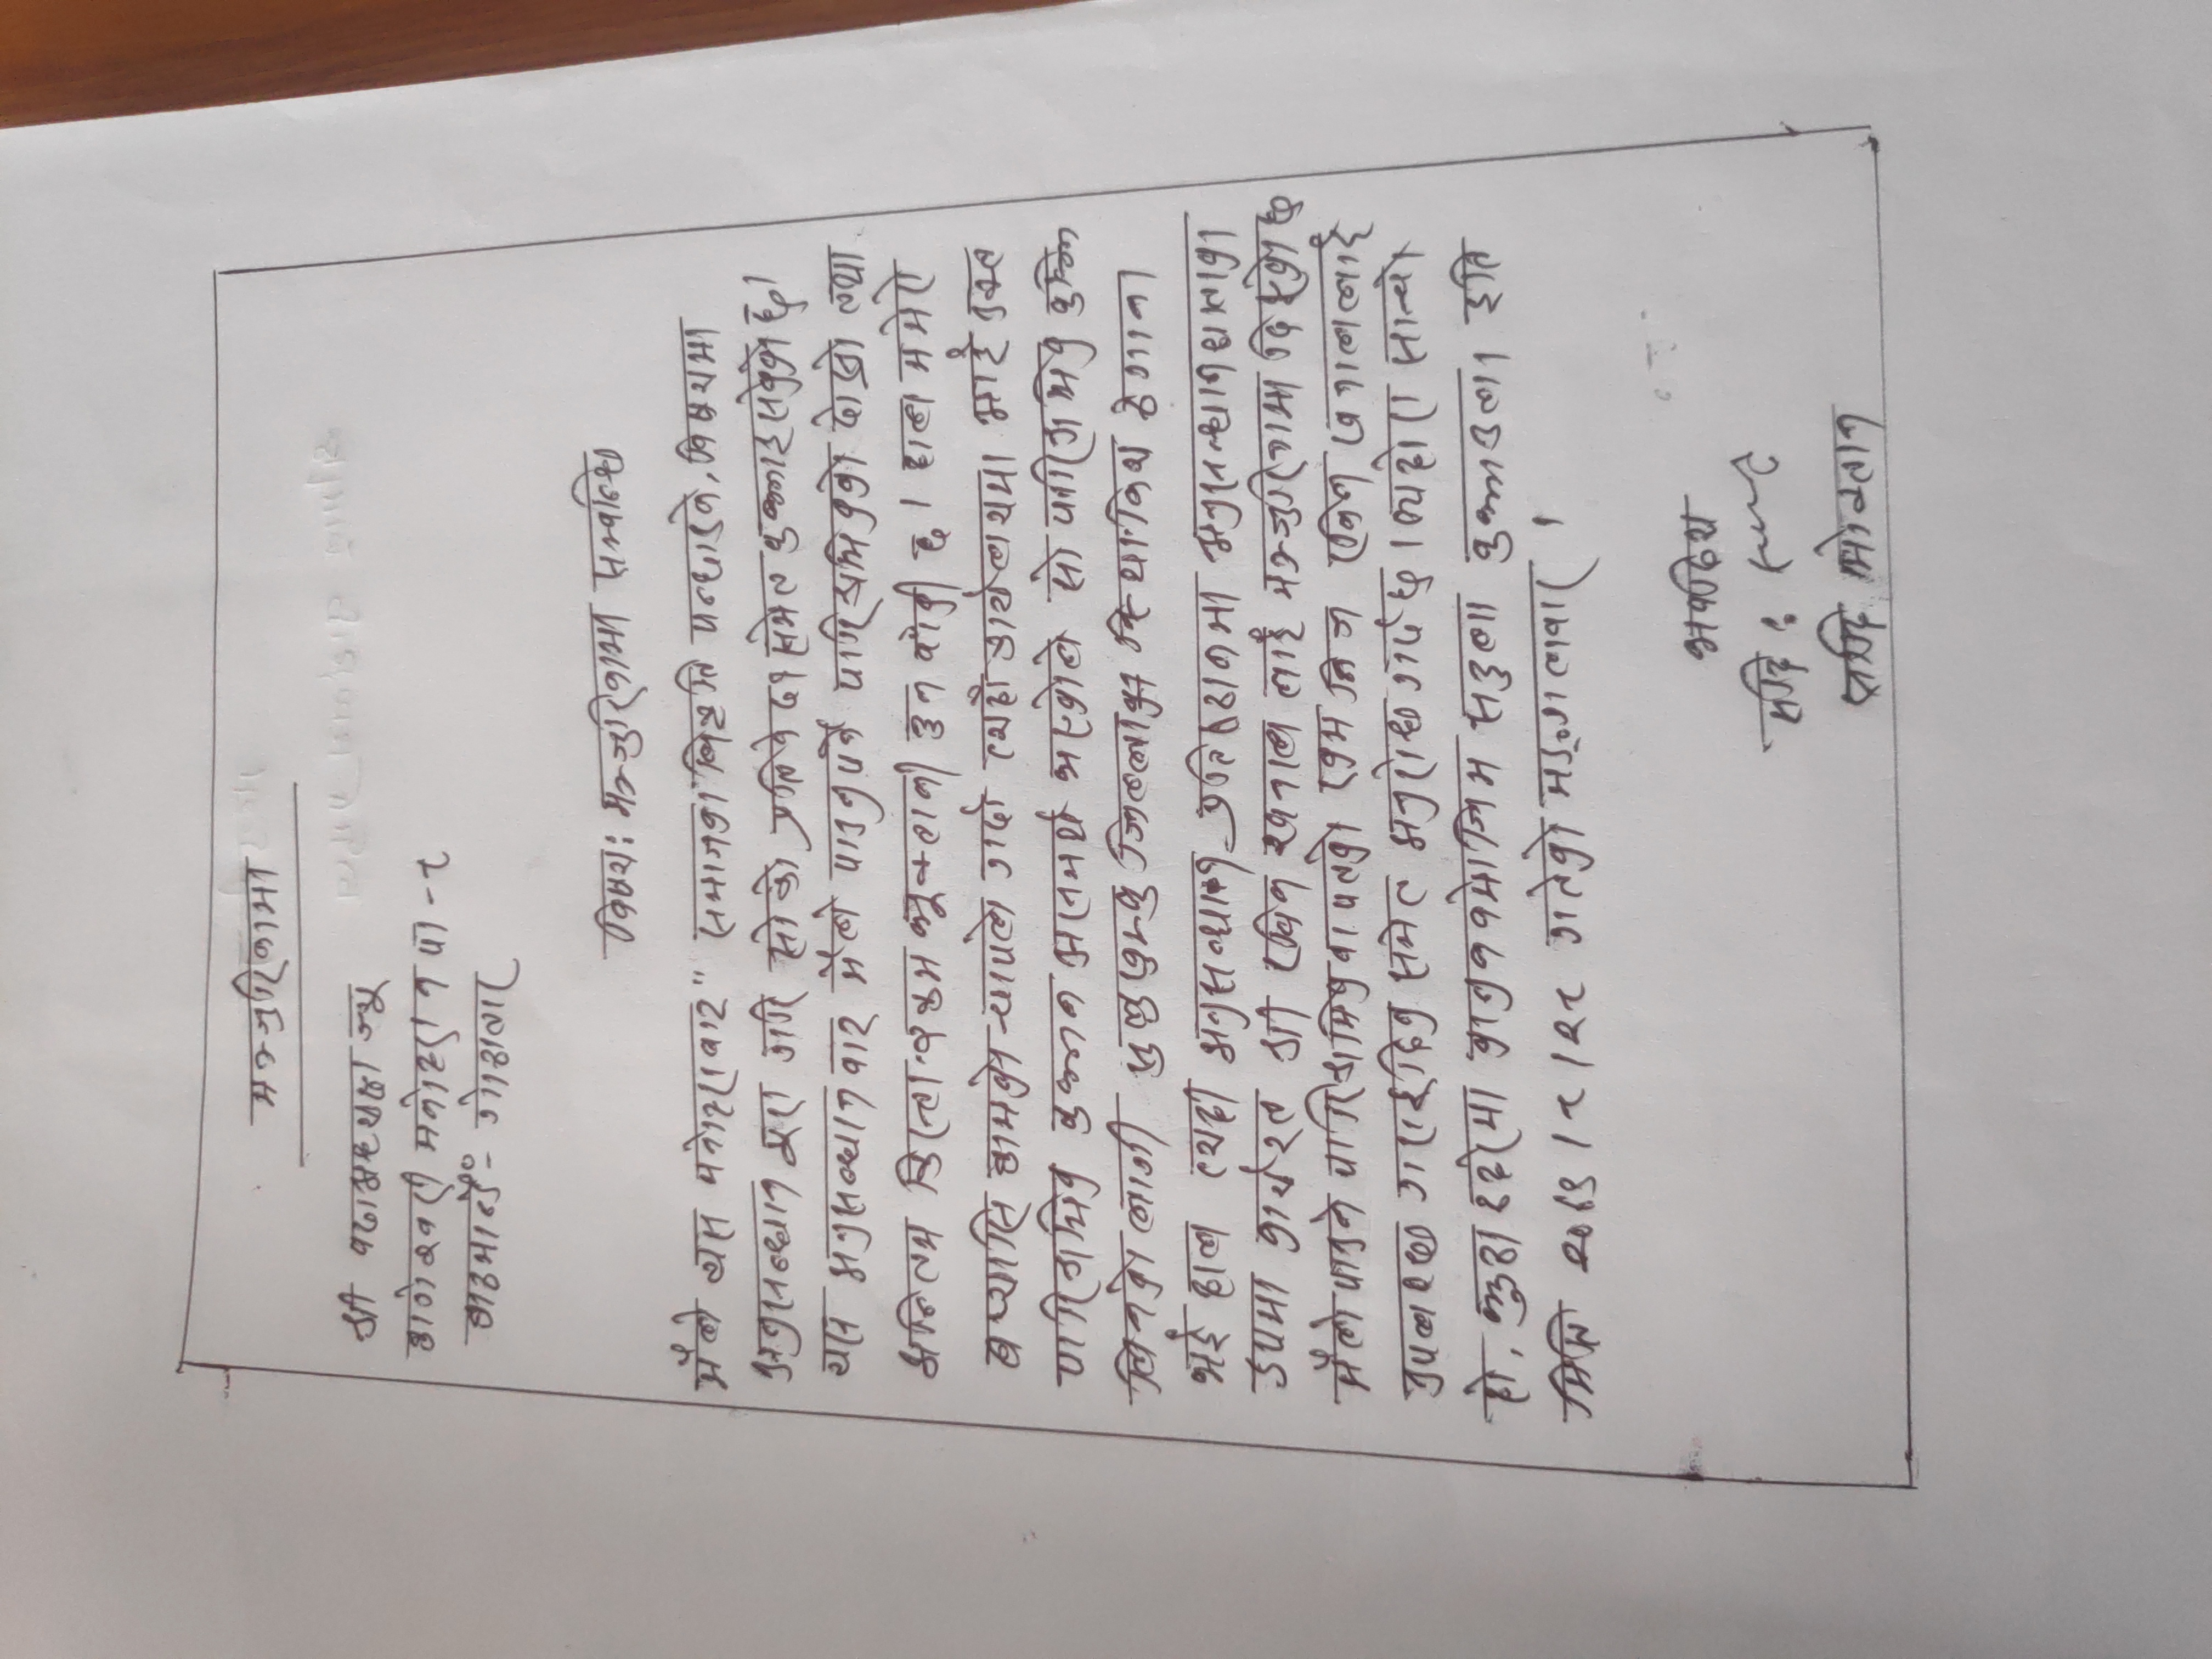 मञ्जुरिनामा
श्री वडाअध्यक्ष ज्यू
कागेश्वरी मनोहरा न पा - ८
काठमान्डौं - गोठातार
विषय: मञ्जुरिनामा सम्बन्धि
मैले यस "समाजका विकृति पन्छाउने, विषयमा
अनुसन्धान पुरा गरि सो को प्रतिवेदन समेत बुझाइसकेको छु।
यस अनुसन्धानबाट मैले पाउनुपर्ने पारिश्रमिकको दोस्रो तथा
अन्तिम किस्ता रकम भूक्तानी हुन बाँकी छ। हाल म मेरो
कामको चापले गर्दा त्यहाँ कार्यलयमा आई उक्त
पारिश्रमिक बुझ्न असमर्थ भएकोले सो पारिश्रमिक बुझि
लिनको लागी सुलुखुम्बु जिल्लाका स्थानिय ठेगाना
भई हाल त्यही अनुसन्धान प्रतिष्ठानमा अनुसन्धानधाताका
रुपमा कार्यरत श्री रबिन खनाल लाई मञ्जुरिनामा दिएको छु
मैले पाउने पारिश्रमिक वापतको रकम निज रबिन खनाललाई
उपलब्ध गराइदिनु समेत अनुरोध गर्दछु। व्यहोरा साचो
हो, झुठा ठहरेमा कानुन बमोजिम सहुला बुझाउला। इति
मिति २०८१।८।२८ गतेको मङ्गलवार ।
भवदिय
सहि :